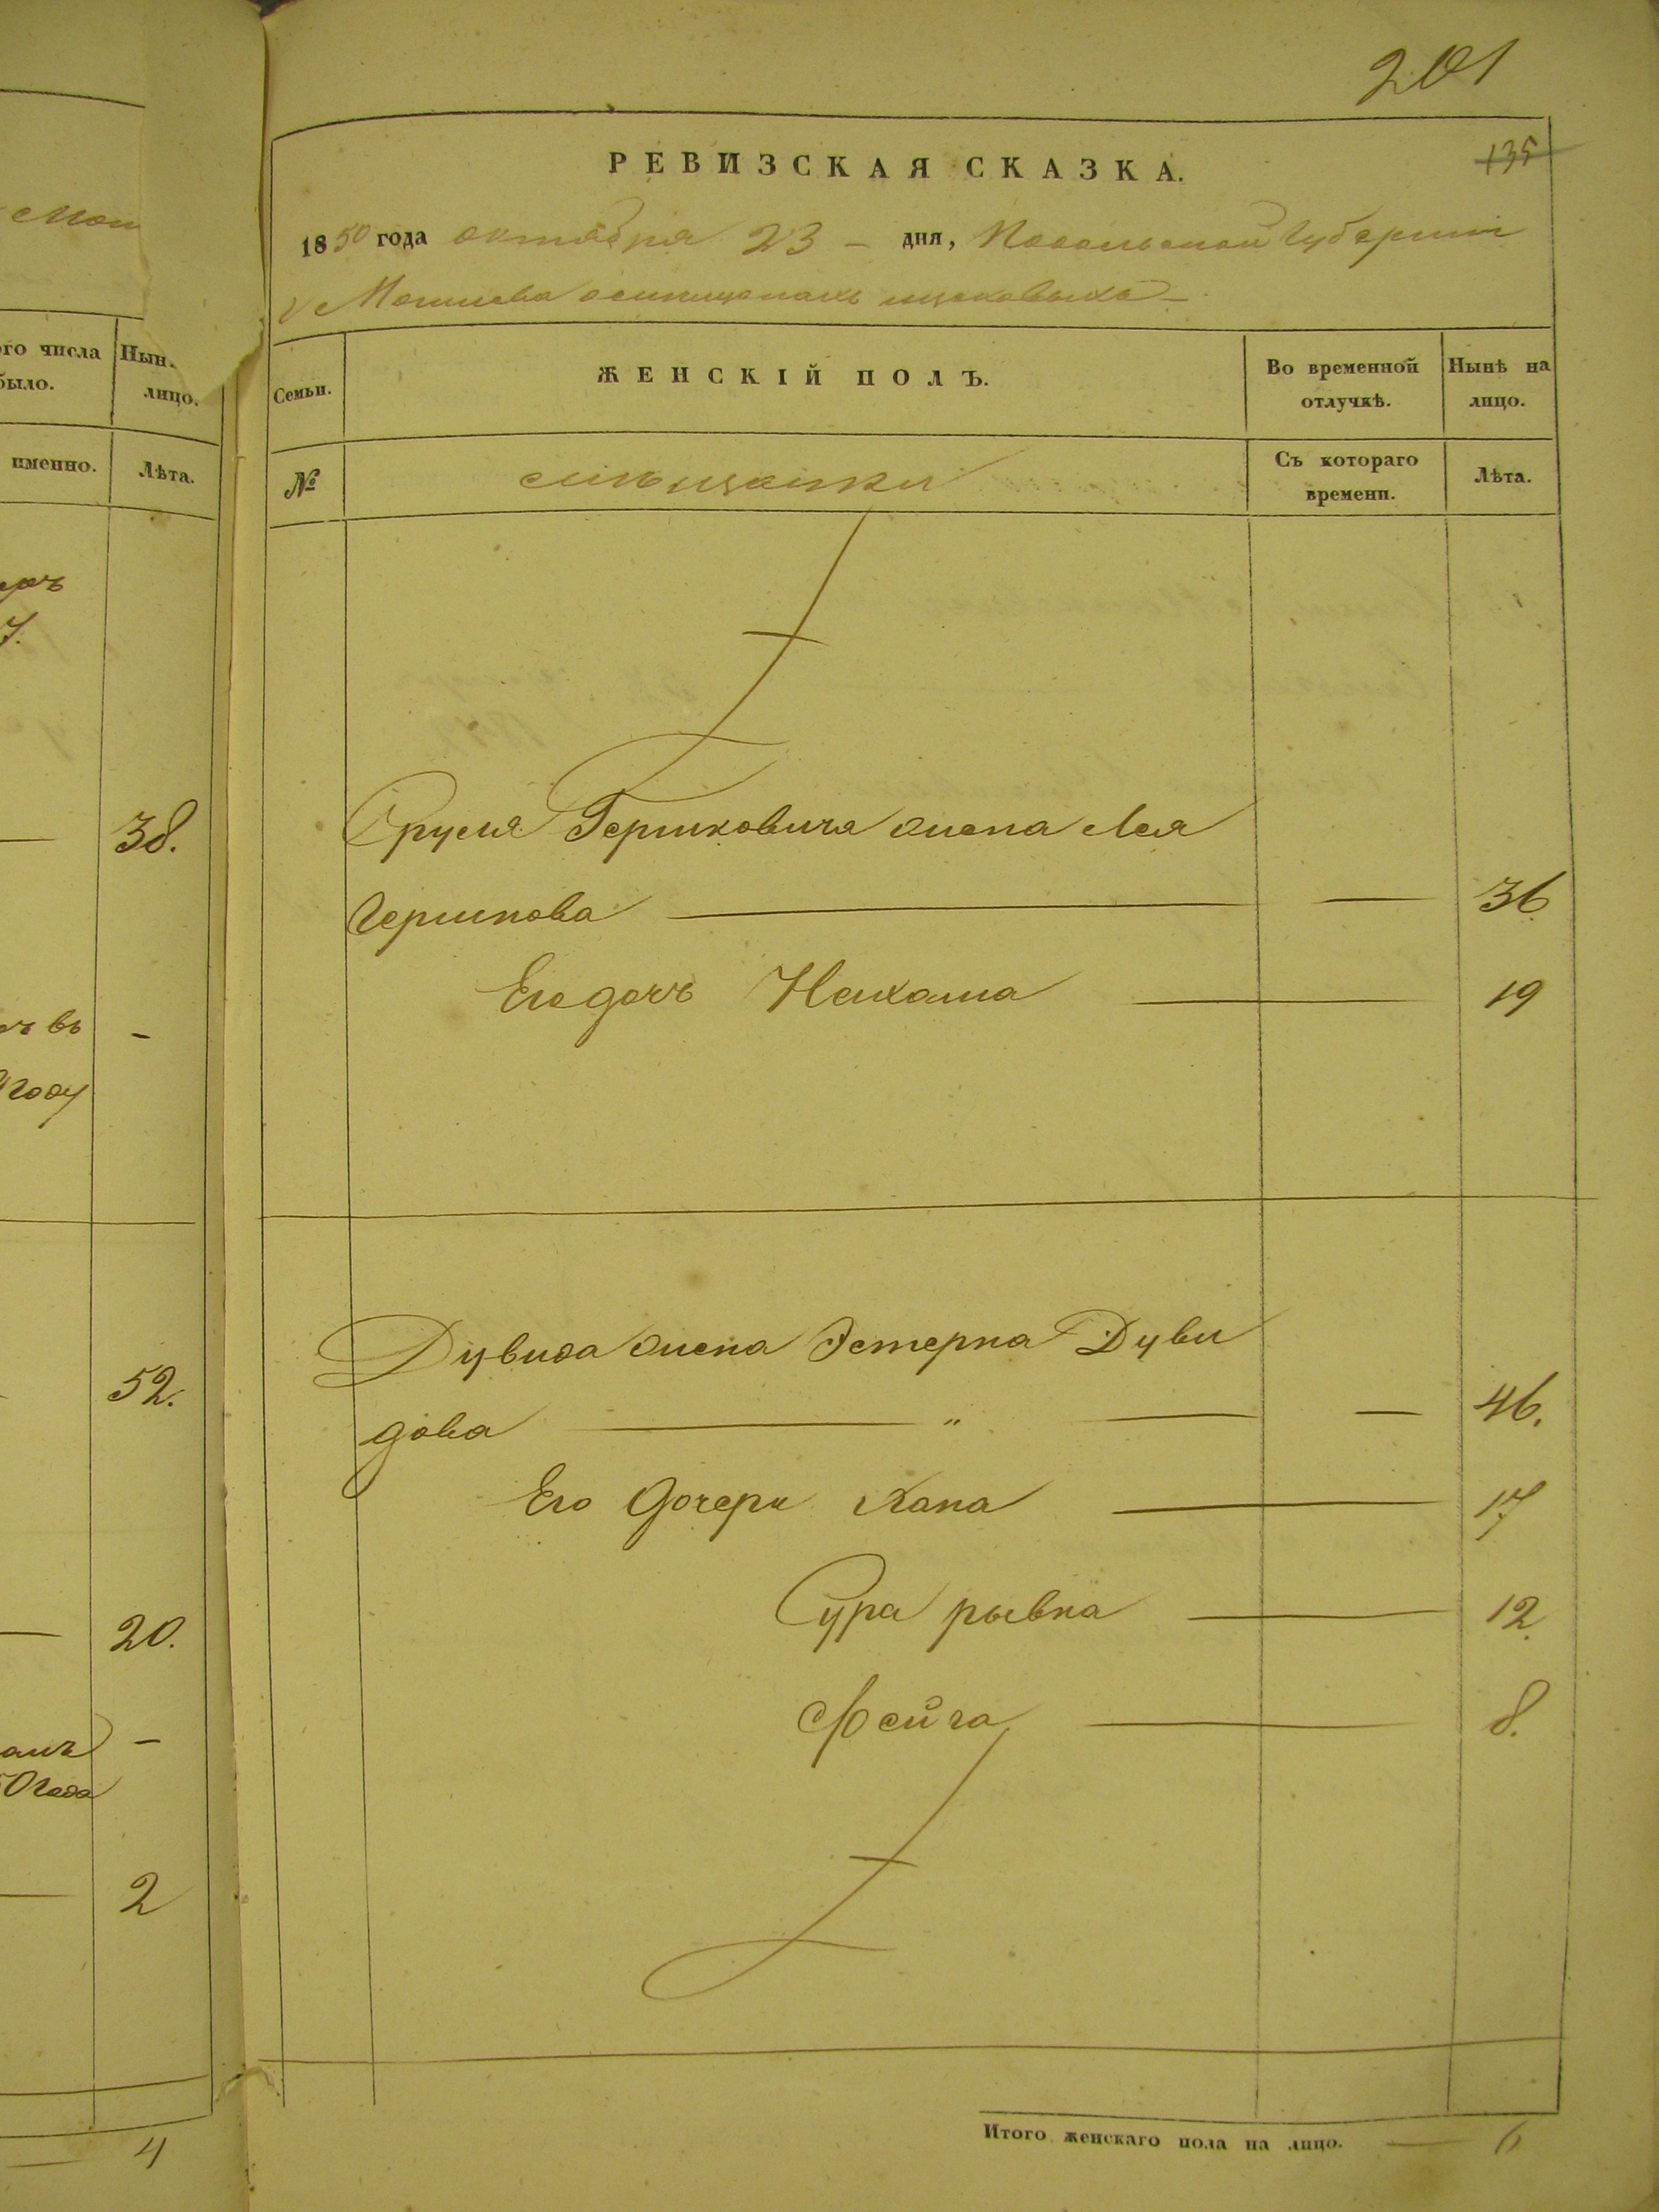 Мои
ого числа
было.
Нын.
лицо.
именно.
Лѣта.
7.
38.
въ
году
52.
20.
50 года
2
4
201
135
РЕВИЗСКАЯ СКАЗКА.
1850 года октября 23 — дня, Подольской Губернии
Семьи.
ЖЕНСКІЙ ПОЛЪ.
Во временной
отлучкѣ.
Нынѣ на
лицо.
№
мѣщанки
Съ котораго
времени.
Лѣта.
Сруля Гершковича жена Лея
Гершкова — — 36
Его дочь Нехама — 19
Дувида жена Эстерка Дуви
дова — „ — — 46.
Его дочери Хана — 17
Сура рывка — 12.
Фейга — 8.
Итого женскаго пола на лицо. — 6